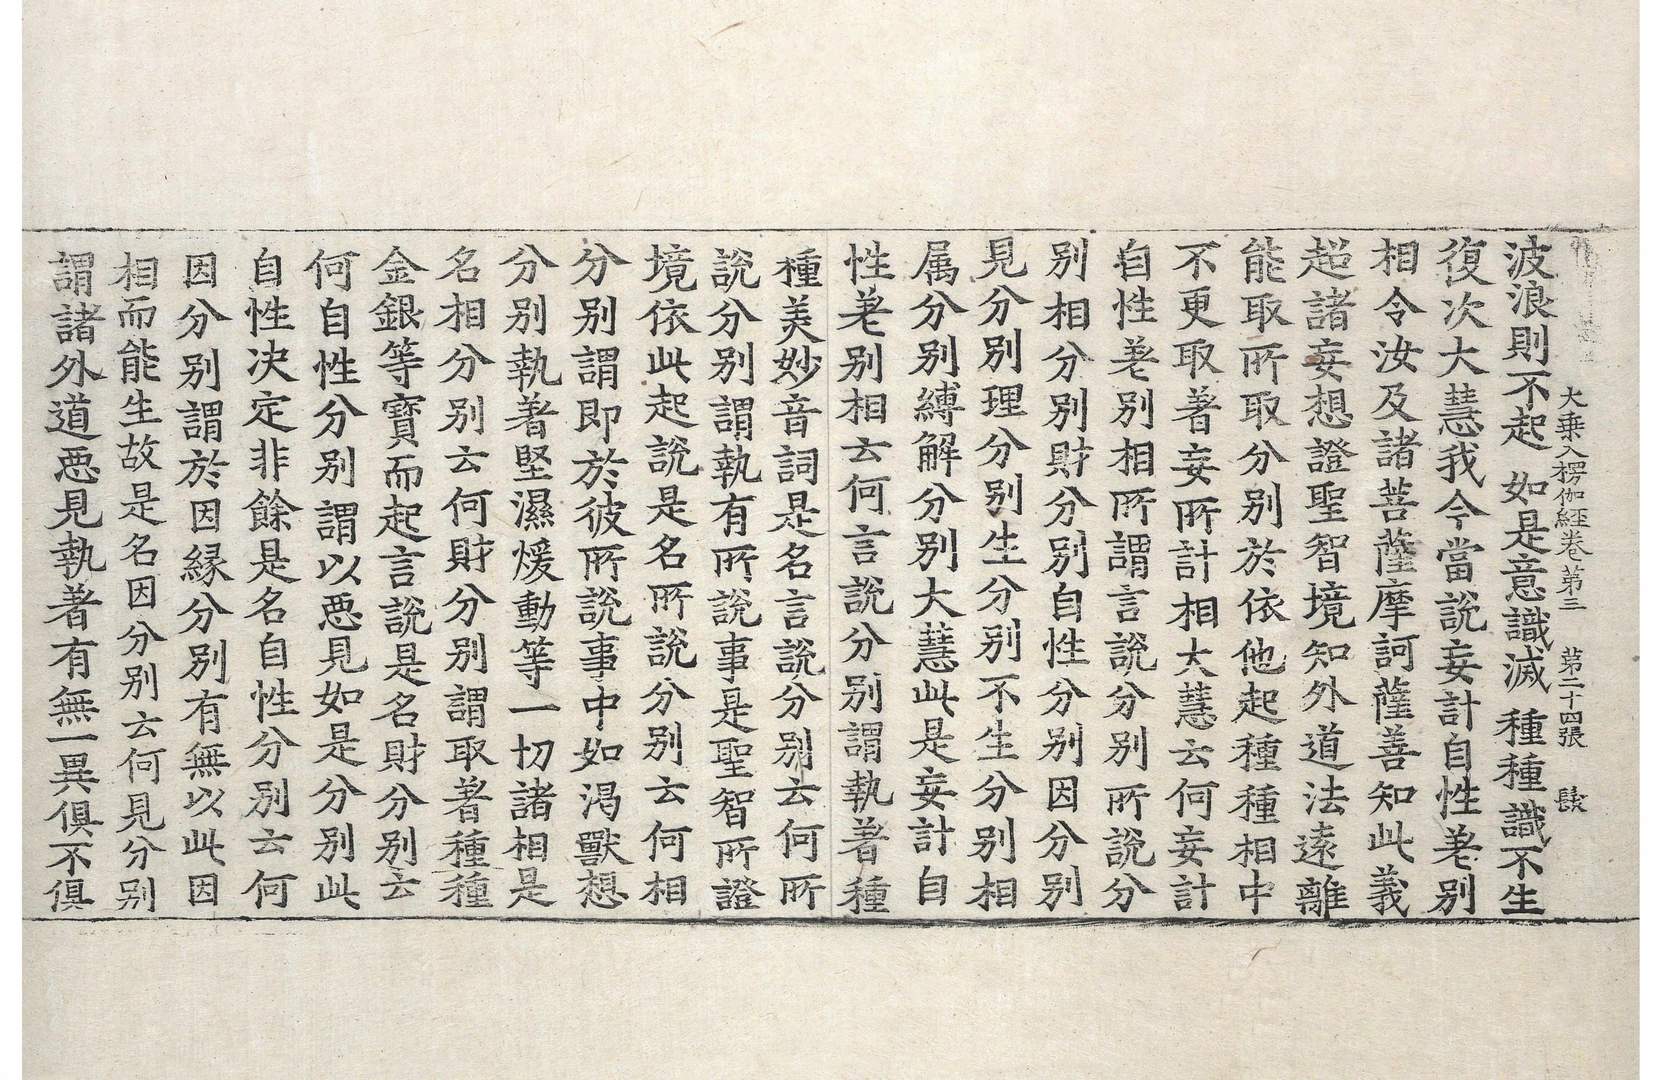 大乗入楞伽經卷第三 第二十四張
波浪則不起 如是意識滅 種種識不生
復次大慧我今當說妄計自性差别
相令汝及諸菩薩摩訶薩善知此義
超諸妄想證聖智境知外道法遠離
能取所取分别於依他起種種相中
不更取著妄所計相大慧云何妄計
自性差别相所謂言說分别所說分
别相分别財分别自性分别因分别
見分别理分别生分别不生分别相
属分别縛解分别大慧此是妄計自
性差别相云何言說分别謂執著種
種美妙音詞是名言說分别云何所
說分别謂執有所說事是聖智所證
境依此起說是名所說分别云何相
分别謂即於彼所說事中如渴獸想
分别執著堅濕煖動等一切諸相是
名相分别云何財分别謂取著種種
金銀等寳而起言說是名財分别云
何自性分别謂以恶見如是分别此
自性决定非餘是名自性分别云何
因分别謂於因緣分别有無以此因
相而能生故是名因分别云何見分别
謂諸外道恶見執著有無一異俱不俱